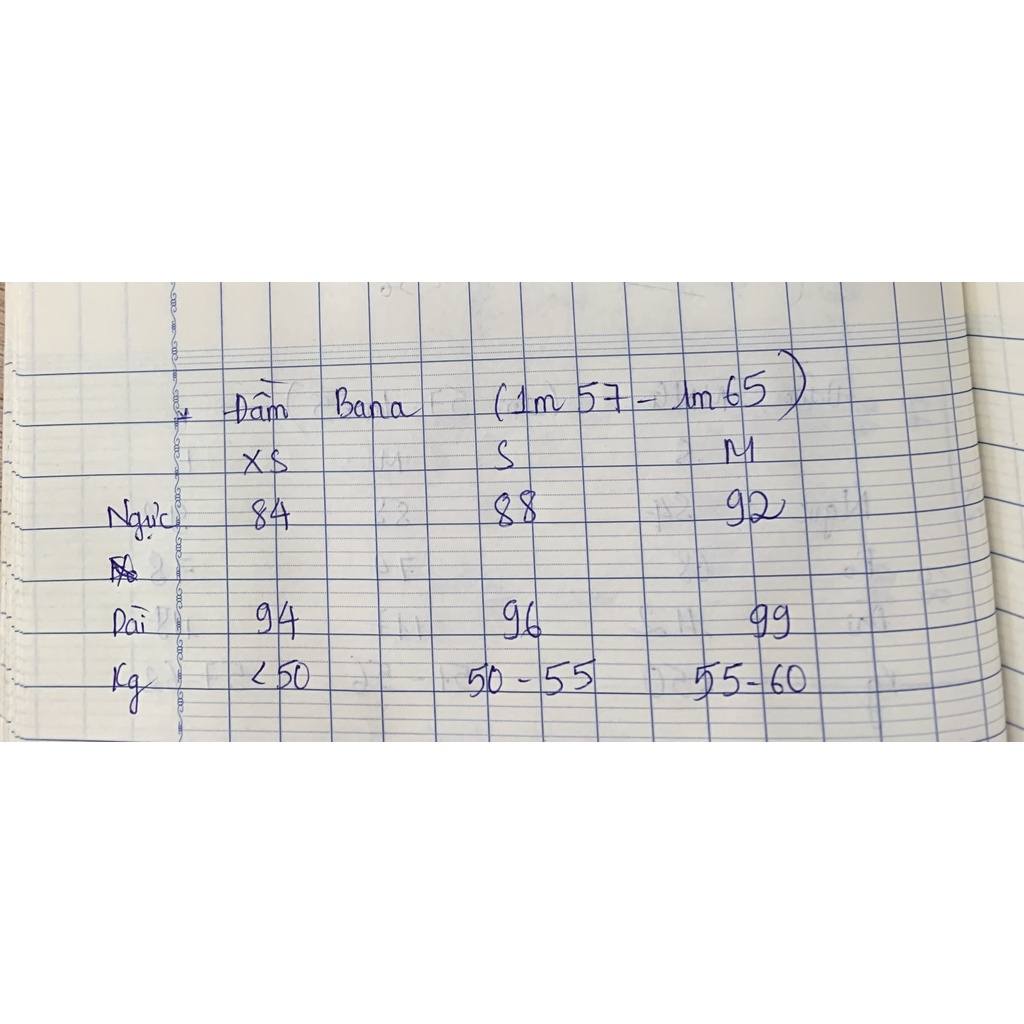 + Đầm Bana (1m57 - 1m65)
XS S M
Ngực 84 88 92
Dài 94 96 99
Kg <50 50 - 55 55 - 60